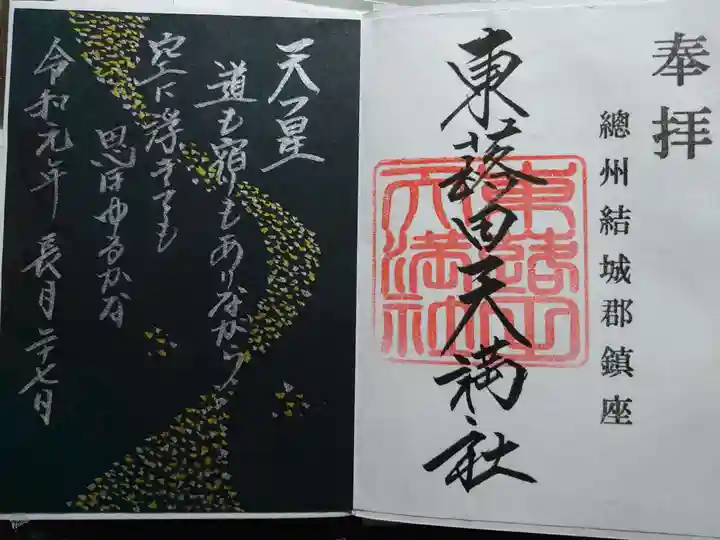 奉拝
總州結城郡鎮座
東蕗田天満社
東蕗田
天満社
天つ星
道も宿りもありながら
空に浮きても
思ほゆるかな
令和元年 長月二十七日